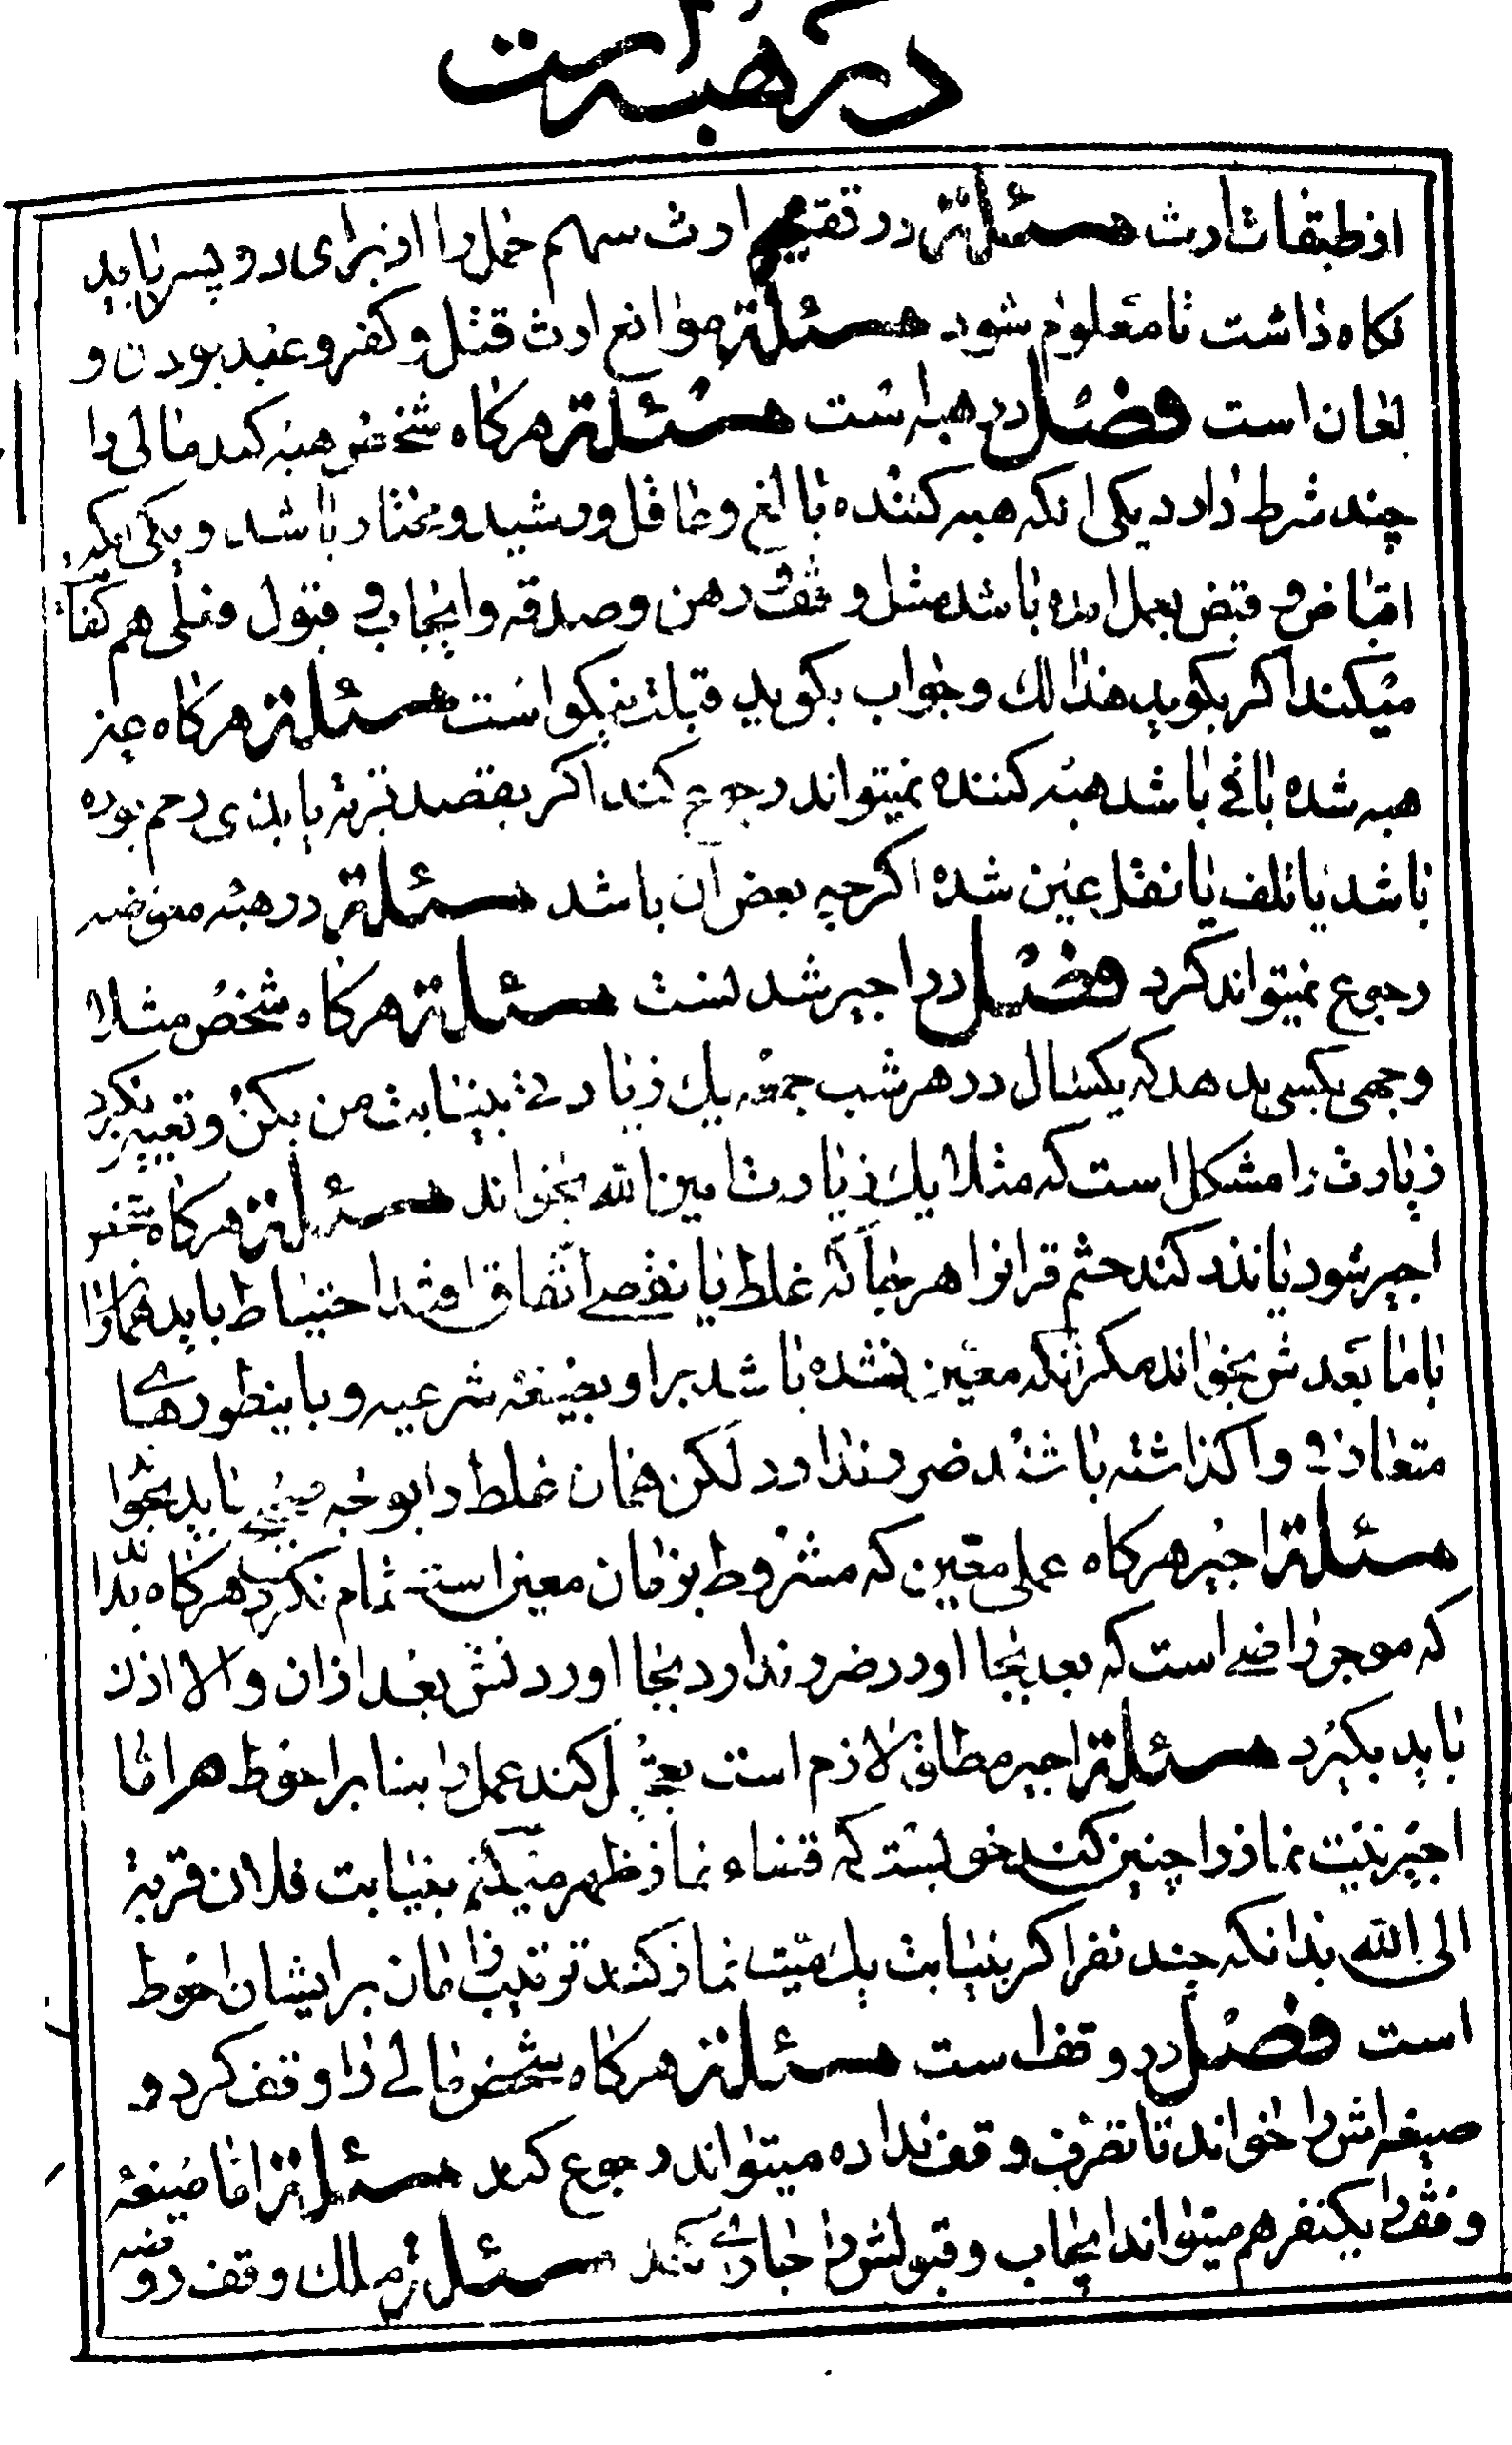 در هبه است
از طبقات ارث مسئلة در تقسیم ارث سهم حمل را از برای دو پسر باید
نکاه داشت تا معلوم شود مسئلة موانع ارث قتل و کفر و عبد بودن و
لعان است فصل در هبه است مسئلة هرکاه شخص هبه کند مالی را
چند شرط دارد یکی انکه هبه کننده بالغ و عاقل و رشید و مختار باشد و یکی انکه
اقباض و قبض بعمل امده باشد مثل وقف و رهن و صدقه و ایجاب و قبول فعلی هم کفایت
میکند اکر بکوید هذا لک و جواب بکوید قبلت نیکو است مسئلة هرکاه عین
هبه شده باقی باشد هبه کننده نمیتواند رجوع کند اکر بقصد قربة یا بذی رحم بوده
باشد یا تلف یا نقل عین شده اکرچه بعض آن باشد مسئلة در هبه معوضه
رجوع نمیتواند کرد فصل در اجیر شدنست مسئلة هرکاه شخص مثلا
وجهی بکسی بدهد که یکسال در هر شب جمعه یک زیارتی بنیابت من بکن و تعیین نکرد
زیارت را مشکل است که مثلا یک زیارت امین الله بخواند مسئلة هرکاه شخص
اجیر شود یا نذر کند ختم قرانرا هر جا که غلط یا نقصی اتفاق افتد احتیاط باید همانرا
با ما بعدش بخواند مکر انکه معین نشده باشد بر او بصیغه شرعیه و باینطورهای
متعارفی واکذاشته باشند ضرر ندارد لکن همان غلط را بوجه صحیح باید بخواند
مسئلة اجیر هرکاه عملی معین که مشروط بزمان معین است تمام نکرد هرکاه بداند
که موجر راضی است که بعد بجا اورد ضرر ندارد بجا اوردنش بعد از ان و الا اذن
باید بکیرد مسئلة اجیر مطلق لازم است تعجیل کند عمل را بنابر احوط هر اما
اجیر نیت نماز را چنین کند خوبست که قضاء نماز ظهر میکنم بنیابت فلان قربة
الی الله بدانکه چند نفر اکر بنیابت یک میت نماز کنند ترتیب زمان برایشان احوط
است فصل در وقف است مسئلة هرکاه شخص مالی را وقف کرد و
صیغه اش را خواند تا تصرف وقف نداده میتواند رجوع کند مسئلة اما صیغه
وقف را یکنفر هم میتواند ایجاب و قبولش را جاری کند مسئلة ملک وقف دو قسم